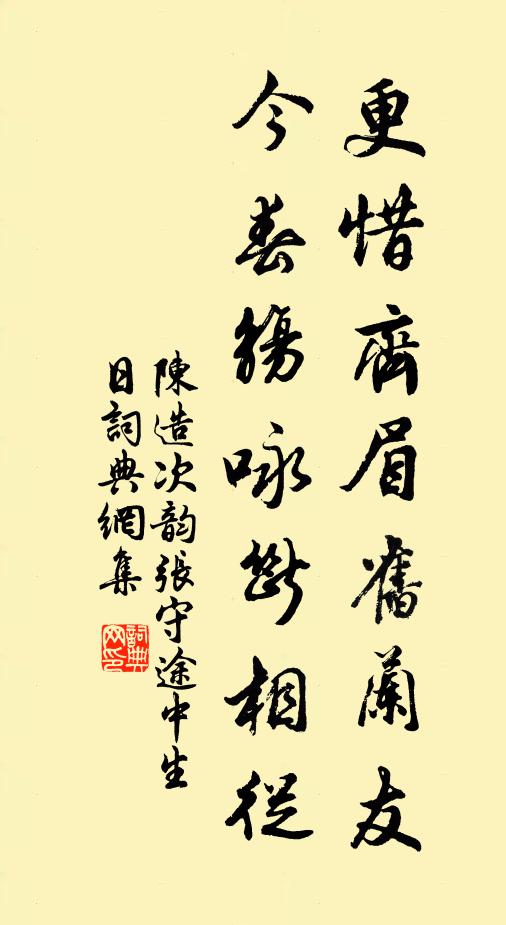 更惜齊眉舊蘭友
今春觴咏斷相從
陳造次韵張守途中生
日詞典網集
詞典網印